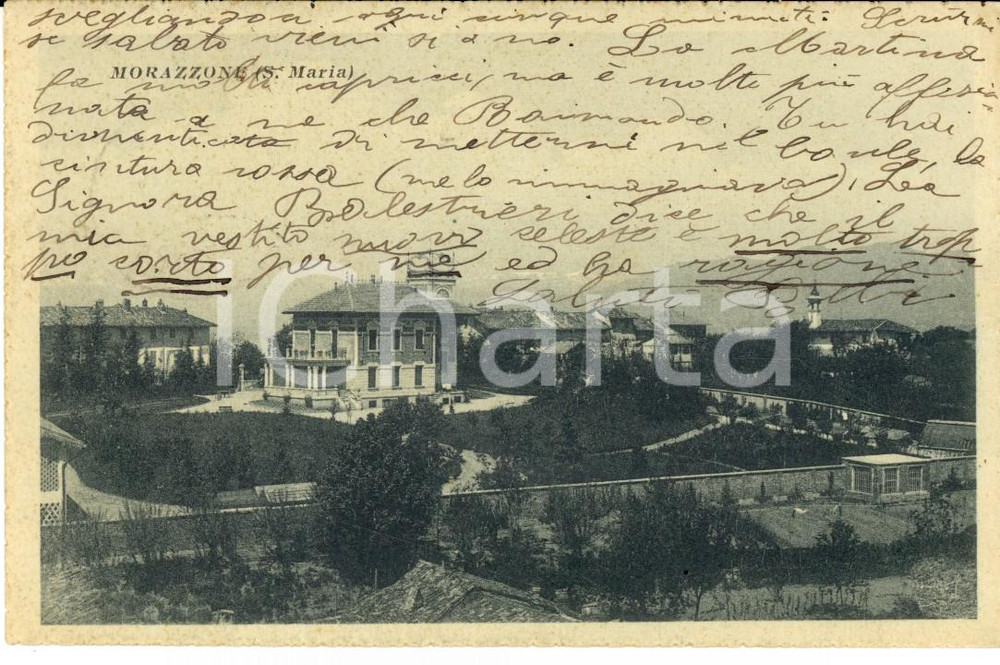 sveglianza ogni cinque minuti. Scrivimi
se sabato vieni si o no. La Martina
MORAZZONE (S. Maria)
fa molti capricci, ma è molto più affezio
nata a me che Raimondo. Tu hai
dimenticata di mettermi nel baule, la
cintura rossa (me lo immaginava). La
Signora Balestrieri dice che il
mio vestito nuovo celeste è molto trop
po corto per me ed ha ragione
Saluti
iCharta